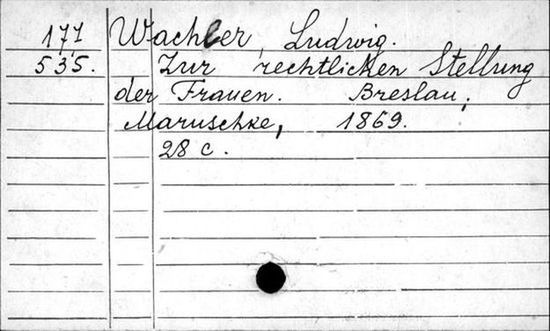 177 Wachler, Ludwig.
535. Zur rechtlichen Stellung
der Frauen. Breslau,
Maruschke, 1869.
28 c.